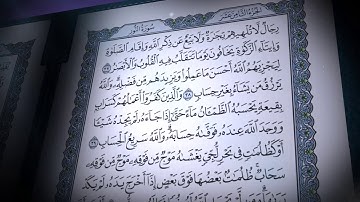 الجزء الثامن عشر
سورة النور
رجال لا تلهيهم تجارة ولا بيع عن ذكر الله وإقام الصلوة
وإيتاء الزكوة يخافون يوما تتقلب فيه القلوب والأبصر ٣٧
ليجزيهم الله أحسن ما عملوا ويزيدهم من فضله والله
يرزق من يشاء بغير حساب ٣٨ والذين كفروا أعملهم كسراب
بقيعة يحسبه الظمئان ماء حتى إذا جاءه لم يجده شيئا
ووجد الله عنده فوفىه حسابه والله سريع الحساب ٣٩
أو كظلمت في بحر لجي يغشىه موج من فوقه موج من فوقه
سحاب ظلمت بعضها فوق بعض إذا أخرج يده لم يكد